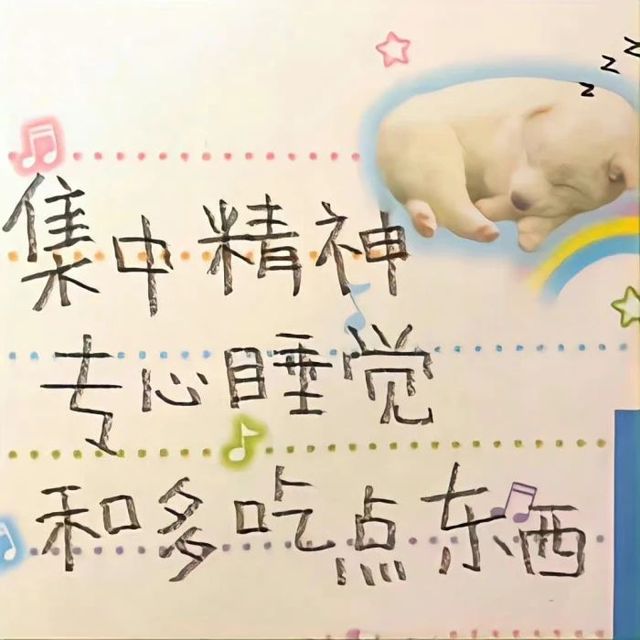 集中精神
专心睡觉
和多吃点东西
z z z